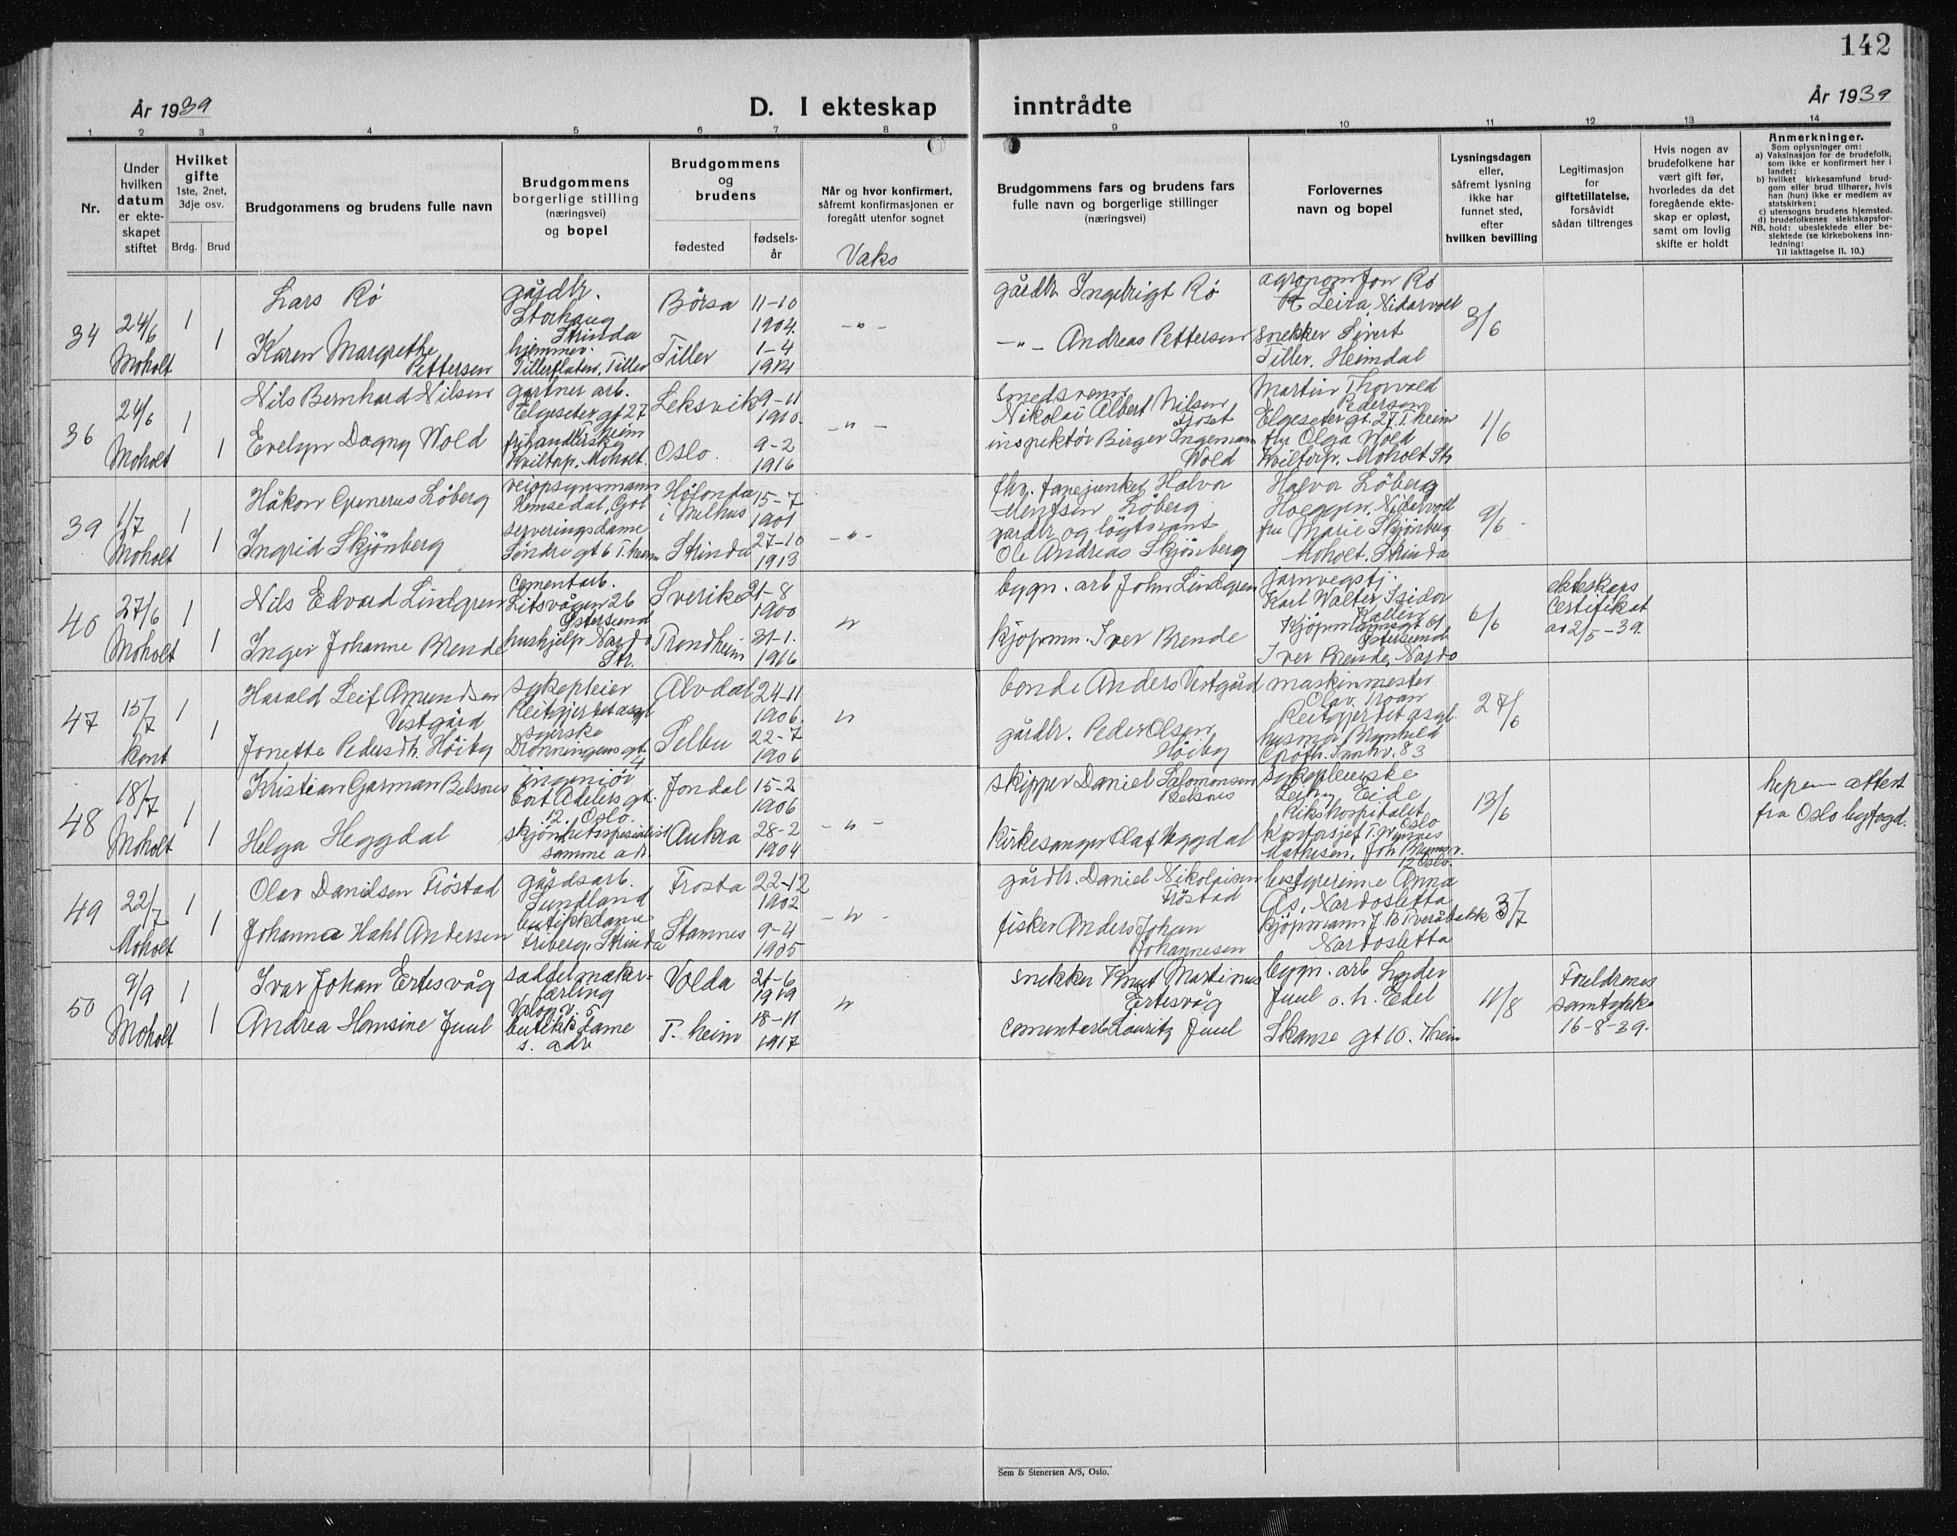 142
År 1939
D. I ekteskap inntrådte
År 1939
1 2 3 4 5 6 7 8 9 10 11 12 13 14
Nr.
Under
hvilken
datum
er ekte-
skapet
stiftet
Hvilket
gifte
1ste, 2net,
3dje osv.
Brdg. Brud
Brudgommens og brudens fulle navn
Brudgommens
borgerlige stilling
(næringsvei)
og bopel
Brudgommens
og
brudens
fødested
fødsels-
år
Når og hvor konfirmert,
såfremt konfirmasjonen er
foregått utenfor sognet
Vaks
Brudgommens fars og brudens fars
fulle navn og borgerlige stillinger
(næringsvei)
Forlovernes
navn og bopel
Lysningsdagen
eller,
såfremt lysning
ikke har
funnet sted,
efter
hvilken bevilling
Legitimasjon
for
giftetillatelse,
forsåvidt
sådan tiltrenges
Hvis nogen av
brudefolkene har
vært gift før,
hvorledes da det
foregående ekte-
skap er opløst,
samt om lovlig
skifte er holdt
Anmerkninger.
Som oplysninger om:
a) Vaksinasjon for de brudefolk,
som ikke er konfirmert her i
landet;
b) hvilket kirkesamfund brud-
gom eller brud tilhører, hvis
han (hun) ikke er medlem av
statskirken;
c) utensogns brudens hjemsted.
d) brudefolkenes slektskapsfor-
NB. hold: ubeslektede eller be-
slektede (se kirkebokens inn-
ledning:
Til iakttagelse II. 10.)
34
24/6
Moholt
1
1
Lars Rö
Karen Margrethe
Pettersen
gårdbr.
Storhaug
Strinda
hjemmev.
Tillerflaten, Tiller
Börsa
Tiller
11-10
1904.
1-4
1914
-"-
gårdbr. Ingebrigt Rö
-"- Andreas Pettersen
agronom Jon Rö
Leira, Nidarvoll
snekker Sivert
Tiller, Heimdal
3/6
36
24/6
Moholt
1
1
Nils Bernhard Nilsen
Evelyn Dagny Wold
gartner arb.
Elgeseter gt 27
T. heim
Kviltorp, Moholt.
Leksvik
Oslo.
9-11
1910.
9-2
1916
-"-
smedsvenn
Nikolai Albert Nilsen
inspektör Birger Ingeman
Wold
Martin Thorvald
Pedersen
Elgeseter gt. 27 T. heim
fru Olga Wold
Kviltorp. Moholt Str
1/6
39
1/7
Moholt
1
1
Håkon Gunerus Löberg
Ingrid Skjönberg
veiopsynsmann
Hemsedal, Gol
serveringsdame
Söndre gt 6 T. heim
Hölonda
i Melhus
Strinda
15-7
1901
27-10
1913
-"-
fhv. fanejunker Halvor
Löberg
gårdbr og löytnant
Ole Andreas Skjönberg
Halvor Löberg
Hoeggen, Nidarvoll
fru Marie Skjönberg
Moholt. Strinda
9/6
40
27/6
Moholt
1
1
Nils Edvard Lindgren
Inger Johanne Brende
cementarb.
Litsvägen 26
Östersund
hushjelp Nardo
Str.
Sverike
Trondheim
21-8
1900
31-1.
1916
"
bygn. arb John Lindgren
kjöpmn. Iver Brende
jarnvegstj.
Karl Walter Isidor
Kjöpmannsgt 61
Östersund
Iver Brende, Nardo
6/6
Ekteskaps
Certifikat
av 2/5-39.
47
15/7
kont
1
1
Harald Leif Amundsen
Vestgård
Jonette Pedersdtr. Höiby
sykepleier
Reitgjerdet asyl
syerske
Dronningens gt.
4
Alvdal
Selbu
24-11
1906.
22-7
1906
"
bonde Anders Vestgård
gårdbr. Peder Olsen
Höiby
maskinmester
Olav Moan
Reitgjerdet asyl
husmor Brynhild
83
27/6
48
18/7
Moholt
1
1
Kristian Garman Belsnes
Helga Heggdal
ingeniör
Cort Adelers gt.
12. Oslo.
skjönhetsspesialist
samme adr.
Jondal
Aukra
15-2
1906
28-2
1904
-"-
skipper Daniel Salomonsen
Belsnes
kirkesanger Olaf Heggdal
sykepleierske
Eide
Rikshospitalet
Oslo
kontorsjef T. Wernes
Mathisen, Joh Brunsv.
12 Oslo.
13/6
attest
fra Oslo byfogd.
49
22/7
Moholt
1
1
Olav Danielsen Fröstad
Johanna Hahl Andersen
gårdsarb.
Sundland
butikkdame
Friberg, Strinda
Frosta
Stamnes
22-12
1902
9-4
1905
-"-
gårdbr. Daniel Nikolaisen
Fröstad
fisker Anders Johan
Johannesen
bestyrerinne Anna
Ås, Nardosletta
kjöpmann J. B Tveråbakk
Nardosletta
3/7
50
9/9
Moholt
1
1
Ivar Johan Ertesvåg
Andrea Hansine Juul
saddelmaker-
lærling
butikkdame
s. adr
Volda
T. heim
21-6
1919
18-11
1917
"
snekker Knut Martinus
Ertesvåg
cementarb Lauritz Juul
bygn. arb Lyder
Juul o. h. Edel
Skanse gt 10. T.heim
11/8
Foreldrenes
samtykke
16-8-39.
Sem & Stenersen A/S, Oslo.